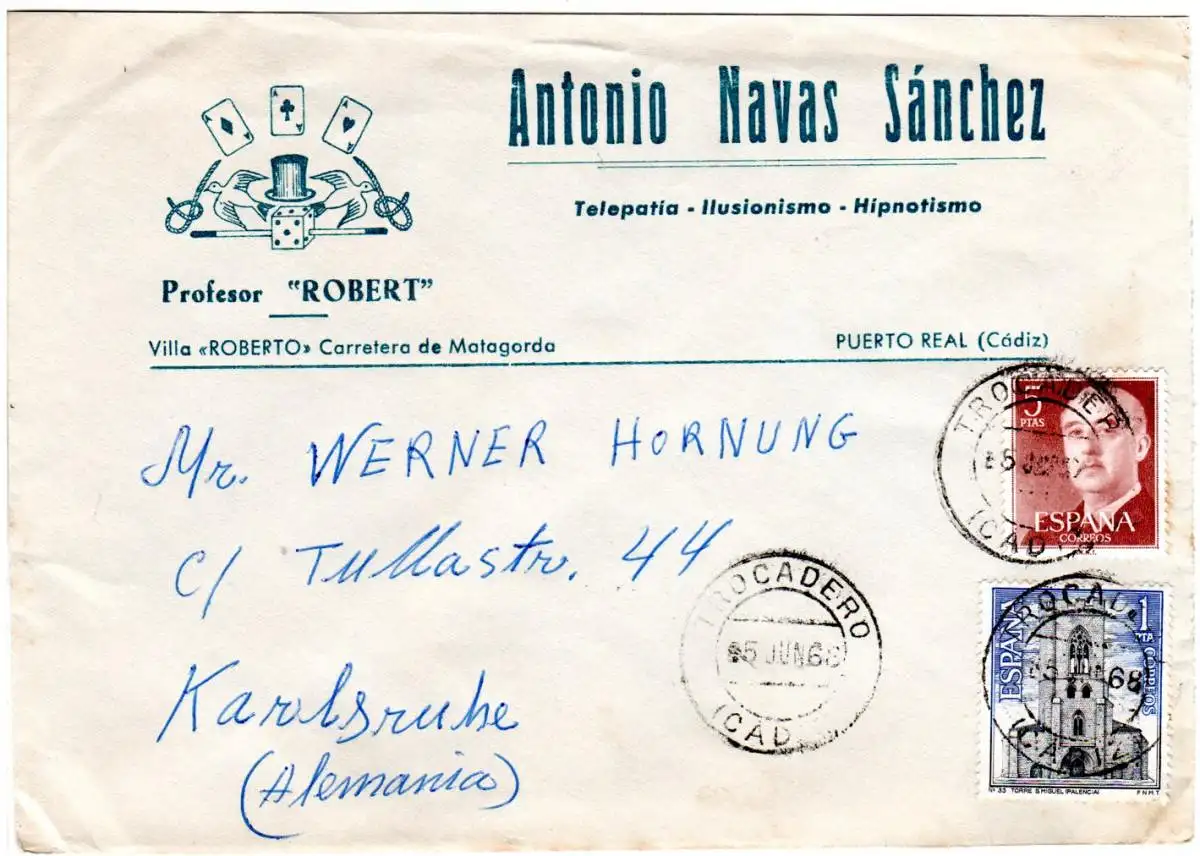 Antonio Navas Sánchez
Telepatía - Ilusionismo - Hipnotismo
Profesor "ROBERT"
Villa «ROBERTO» Carretera de Matagorda
PUERTO REAL (Cádiz)
A A
A A
A A
Mr. WERNER HORNUNG
c/ Tullastr. 44
Karlsruhe
(Alemania)
TROCADERO
5 JUN 68
(CAD
5
PTAS
ESPAÑA
CORREOS
TROCADER
5 JUN
(CAD
1
PTA
ESPAÑA
CORREOS
TROCAD
68
(CADIZ)
Nº 33 TORRE S MIGUEL (PALENCIA) F.N.M.T.